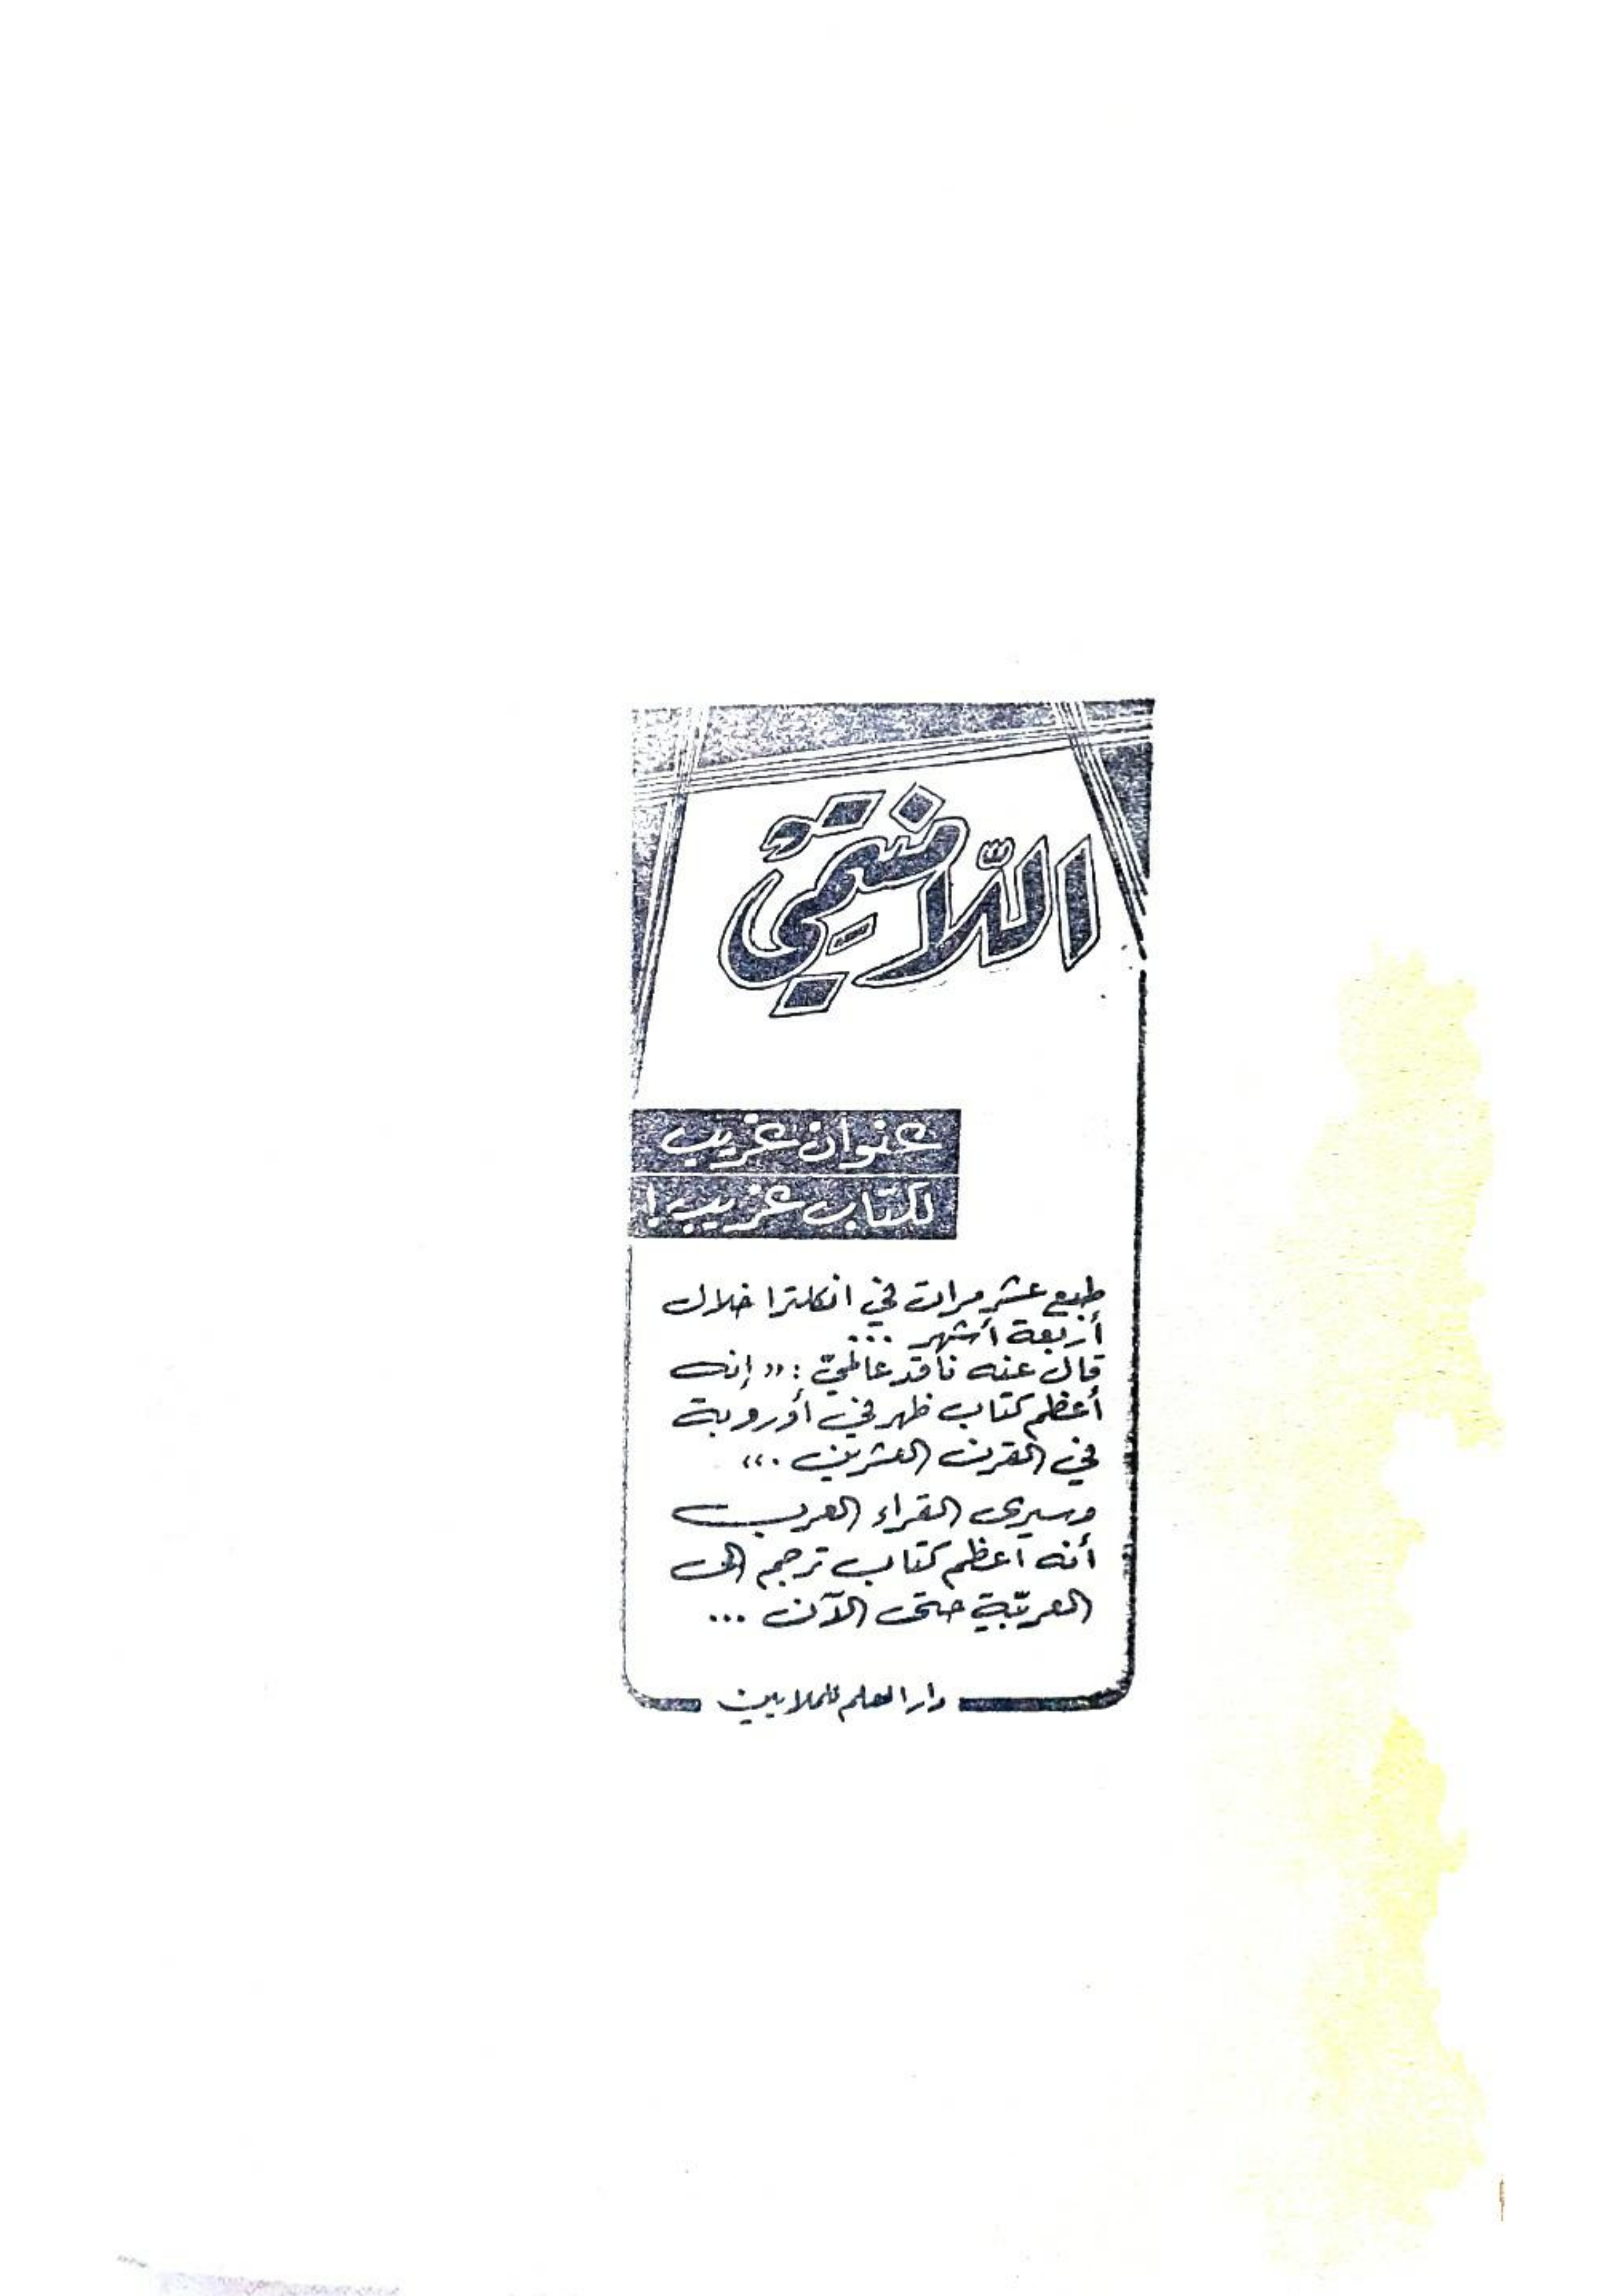 اللّامنتمي
عنوان غريب
لكتاب غريب!
طبع عشر مرات في انكلترا خلال
أربعة أشهر ...
قال عنه ناقد عالميّ : « إنه
أعظم كتاب ظهر في أوروبة
في القرن العشرين . »
وسيرى القراء العرب
أنه أعظم كتاب ترجم الى
العربيّة حتى الآن ...
دار العلم للملايين